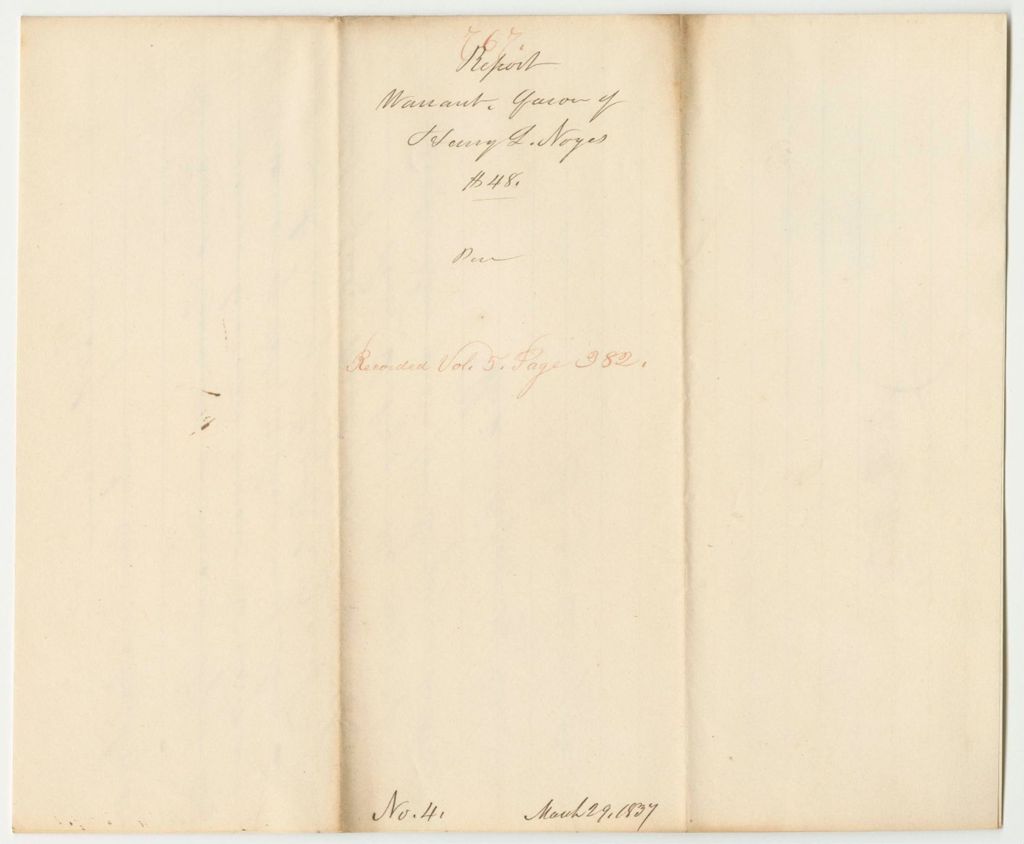 767
Report
Warrant, favor of
Henry L. Noyes
$48.
Recorded Vol. 5. Page 382.
No. 4. March 29, 1837